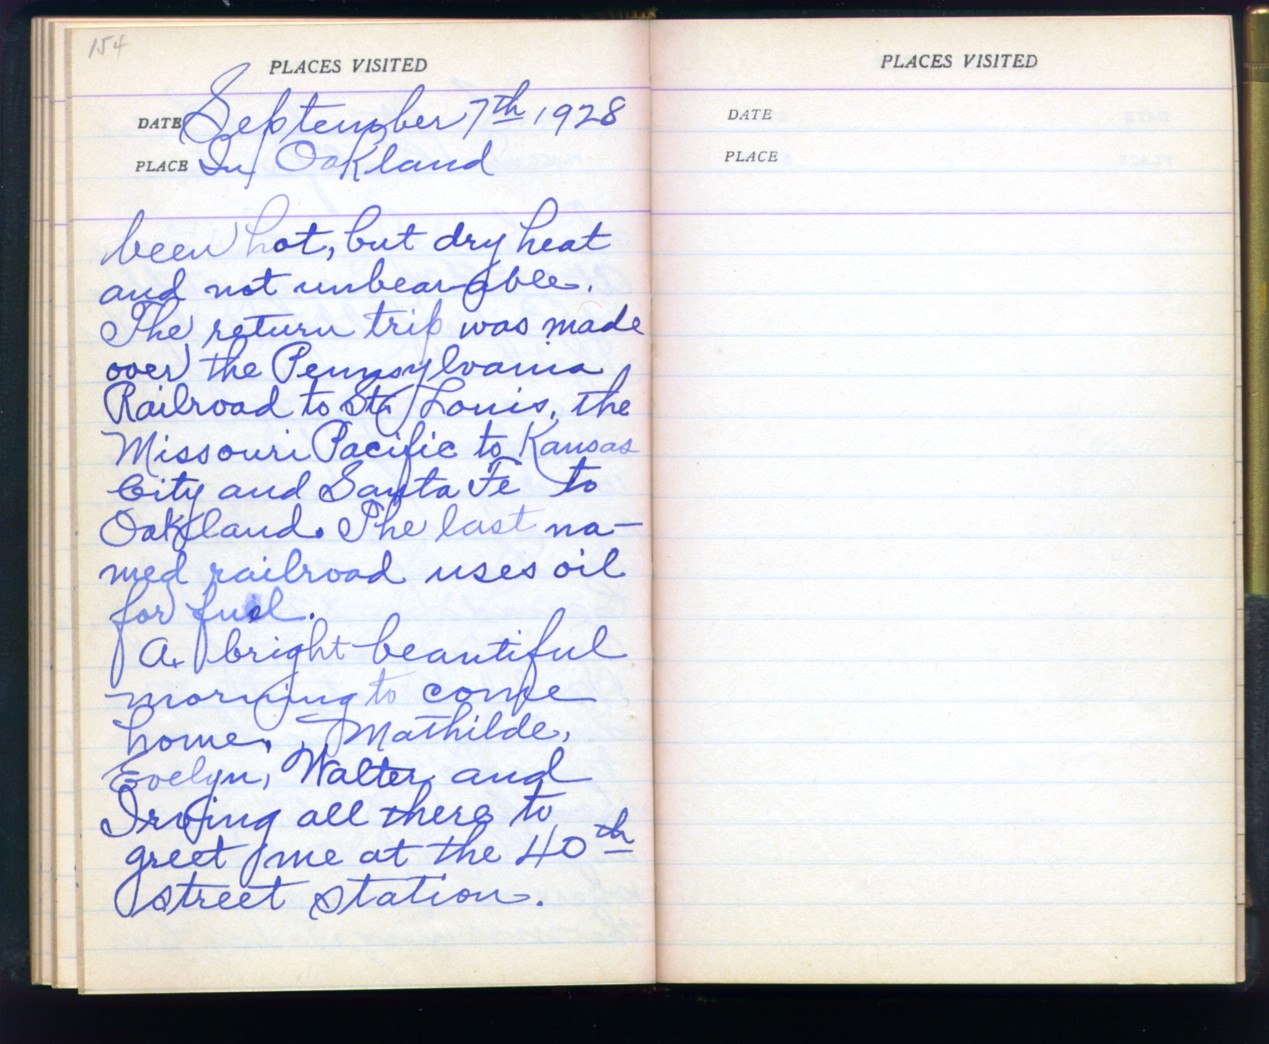 154
PLACES VISITED
DATE September 7th 1928
PLACE In Oakland
been hot, but dry heat
and not unbearable.
The return trip was made
over the Pennsylvania
Railroad to St. Louis, the
Missouri Pacific to Kansas
City and Santa Fe to
Oakland. The last na-
med railroad uses oil
for fuel.
A bright beautiful
morning to come
home. Mathilde,
Evelyn, Walter and
Irving all there to
greet me at the 40th
street station.
PLACES VISITED
DATE
PLACE